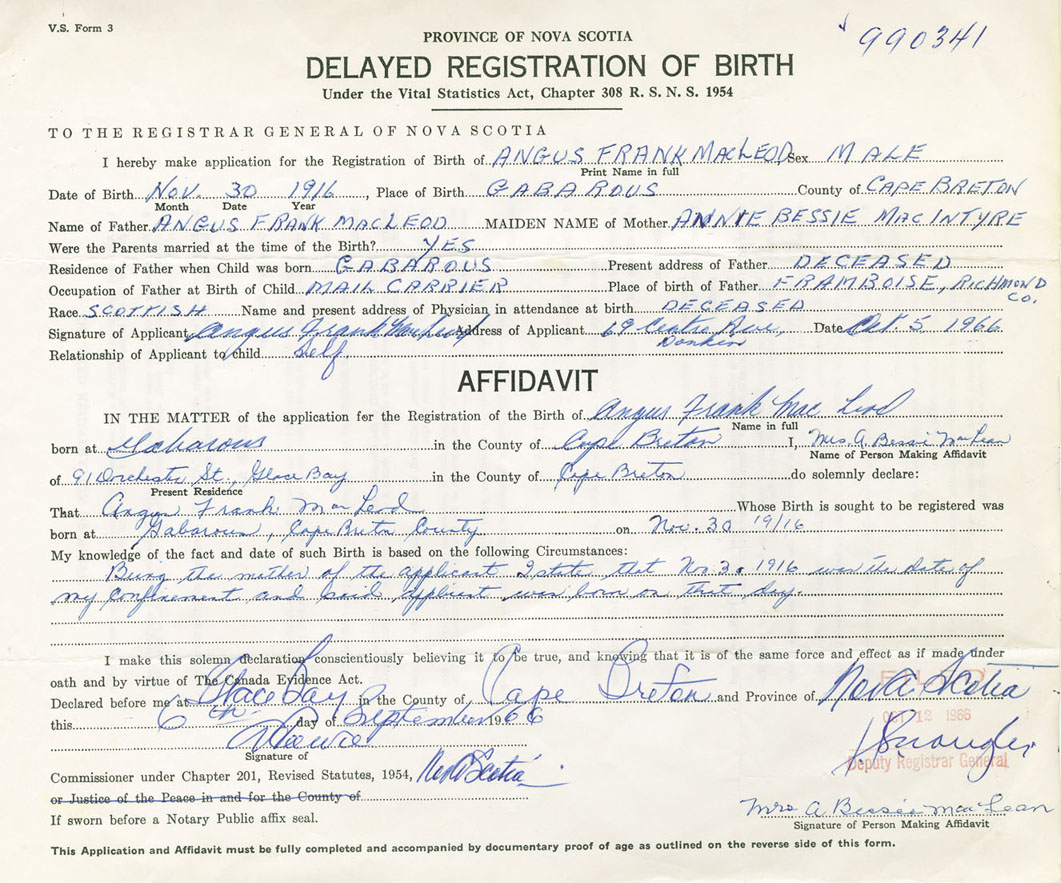 V.S. Form 3
990341
PROVINCE OF NOVA SCOTIA
DELAYED REGISTRATION OF BIRTH
Under the Vital Statistics Act, Chapter 308 R. S. N. S. 1954
TO THE REGISTRAR GENERAL OF NOVA SCOTIA
I hereby make application for the Registration of Birth of ANGUS FRANK MacLEOD Sex MALE
Print Name in full
Date of Birth Nov. 30 1916, Place of Birth GABAROUS County of CAPE BRETON
Month Date Year
Name of Father ANGUS FRANK MACLEOD MAIDEN NAME of Mother ANNIE BESSIE MacINTYRE
Were the Parents married at the time of the Birth? YES
Residence of Father when Child was born GABAROUS Present address of Father DECEASED
Occupation of Father at Birth of Child MAIL CARRIER Place of birth of Father FRAMBOISE, RICHMOND CO.
Race SCOTTISH Name and present address of Physician in attendance at birth DECEASED
Signature of Applicant Angus Frank MacLeod Address of Applicant 69 Centre Ave, Donkin Date Oct. 5 1966
Relationship of Applicant to child Self
AFFIDAVIT
IN THE MATTER of the application for the Registration of the Birth of Angus Frank Mac Leod
Name in full
born at Gabarous in the County of Cape Breton I, Mrs. A. Bessie MacLean
Name of Person Making Affidavit
of 91 Orchester St., Glace Bay in the County of Cape Breton do solemnly declare:
Present Residence
That Angus Frank MacLeod Whose Birth is sought to be registered was
born at Gabarous, Cape Breton County on Nov. 30 19/16
My knowledge of the fact and date of such Birth is based on the following Circumstances:
Being the mother of the applicant I state that No. 30 1916 was the date of
my confinement and said applicant was born on that day.
I make this solemn declaration conscientiously believing it to be true, and knowing that it is of the same force and effect as if made under
oath and by virtue of The Canada Evidence Act.
Declared before me at Glace Bay in the County of Cape Breton and Province of Nova Scotia
this 6th day of September 1966
OCT 12 1966
Signature of
Deputy Registrar General
Commissioner under Chapter 201, Revised Statutes, 1954, Nova Scotia
or Justice of the Peace in and for the County of
Mrs A. Bessie MacLean
If sworn before a Notary Public affix seal.
Signature of Person Making Affidavit
This Application and Affidavit must be fully completed and accompanied by documentary proof of age as outlined on the reverse side of this form.